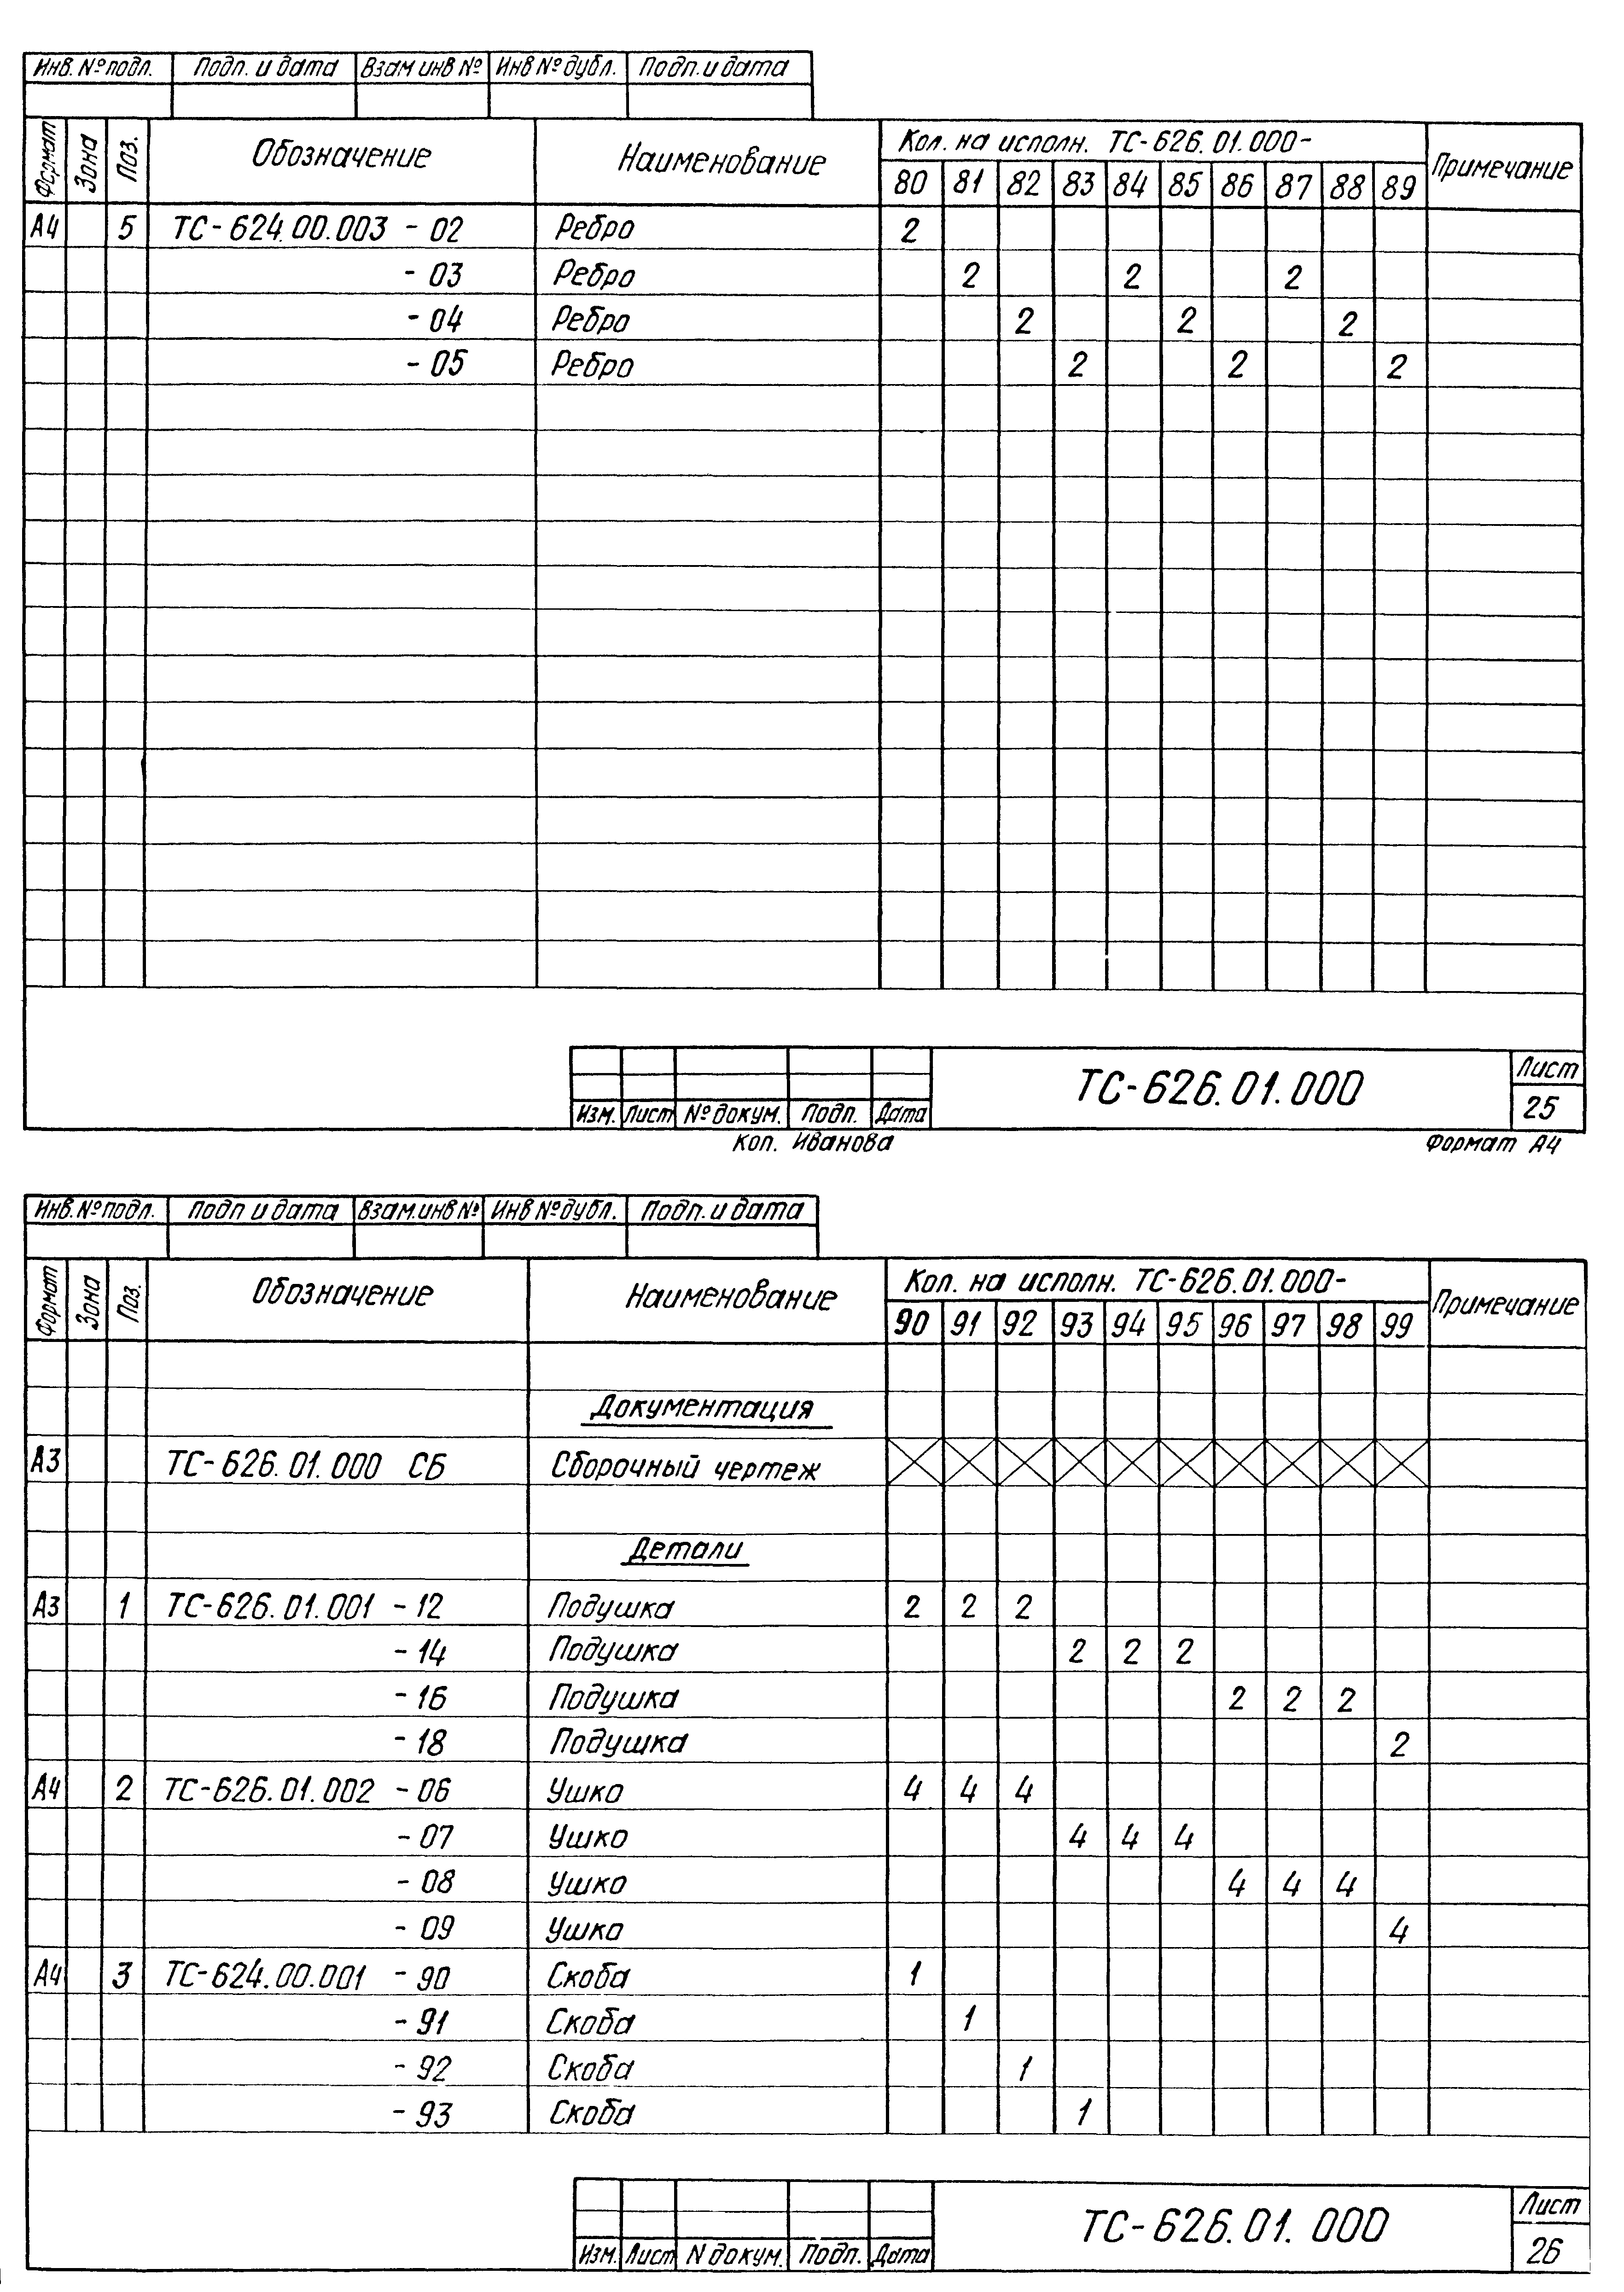 Инв. № подл. Подп. и дата Взам инв № Инв № дубл. Подп. и дата
Формат Зона Поз. Обозначение Наименование Кол. на исполн. ТС-626.01.000- Примечание
80 81 82 83 84 85 86 87 88 89
А4 5 ТС-624.00.003 - 02 Ребро 2
- 03 Ребро 2 2 2
- 04 Ребро 2 2 2
- 05 Ребро 2 2 2
ТС-626.01.000 Лист
25
Изм. Лист № докум. Подп. Дата
Коп. Иванова Формат А4
Инв. № подл. Подп и дата Взам. инв № Инв № дубл. Подп. и дата
Формат Зона Поз. Обозначение Наименование Кол. на исполн. ТС-626.01.000- Примечание
90 91 92 93 94 95 96 97 98 99
Документация
А3 ТС-626.01.000 СБ Сборочный чертеж
Детали
А3 1 ТС-626.01.001 - 12 Подушка 2 2 2
- 14 Подушка 2 2 2
- 16 Подушка 2 2 2
- 18 Подушка 2
А4 2 ТС-626.01.002 - 06 Ушко 4 4 4
- 07 Ушко 4 4 4
- 08 Ушко 4 4 4
- 09 Ушко 4
А4 3 ТС-624.00.001 - 90 Скоба 1
- 91 Скоба 1
- 92 Скоба 1
- 93 Скоба 1
ТС-626.01.000 Лист
26
Изм. Лист N докум. Подп. Дата